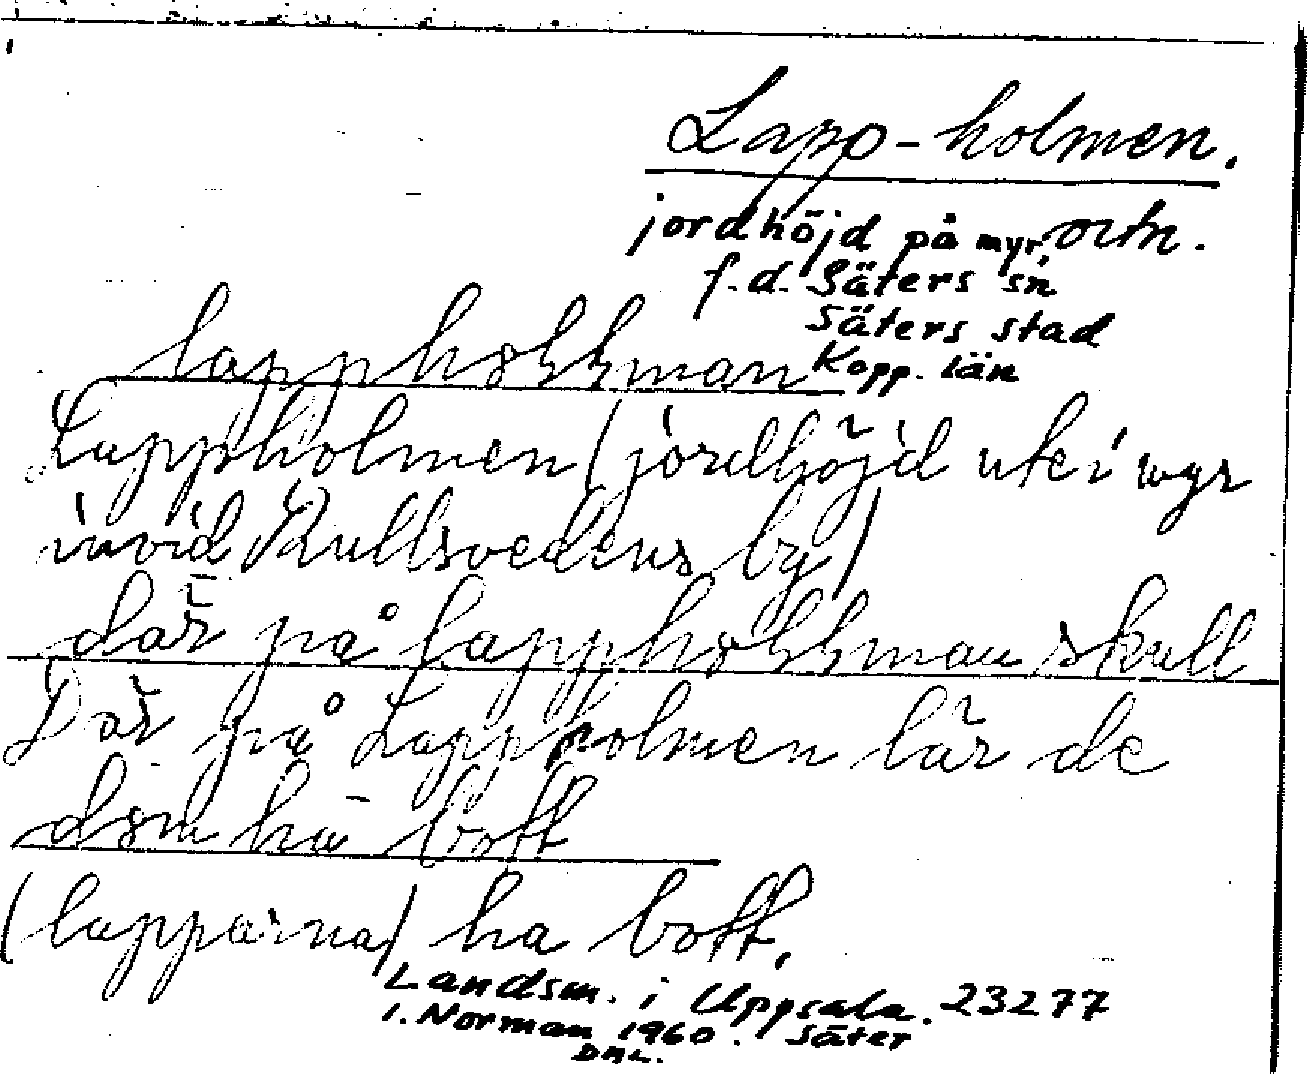 Lapp-holmen.
jordhöjd på myr, ortn.
f.d. Säters sn
Säters stad
Kopp. län
lappholman
Lappholmen (jordhöjd ute i myr
invid Kullsvedens by)
där på lappholman skull
Där på Lappholmen lär de
dsm ha bott
(lapparna) ha bott.
Landsm. i Uppsala. 23277
I. Norman 1960. Säter
DAL.